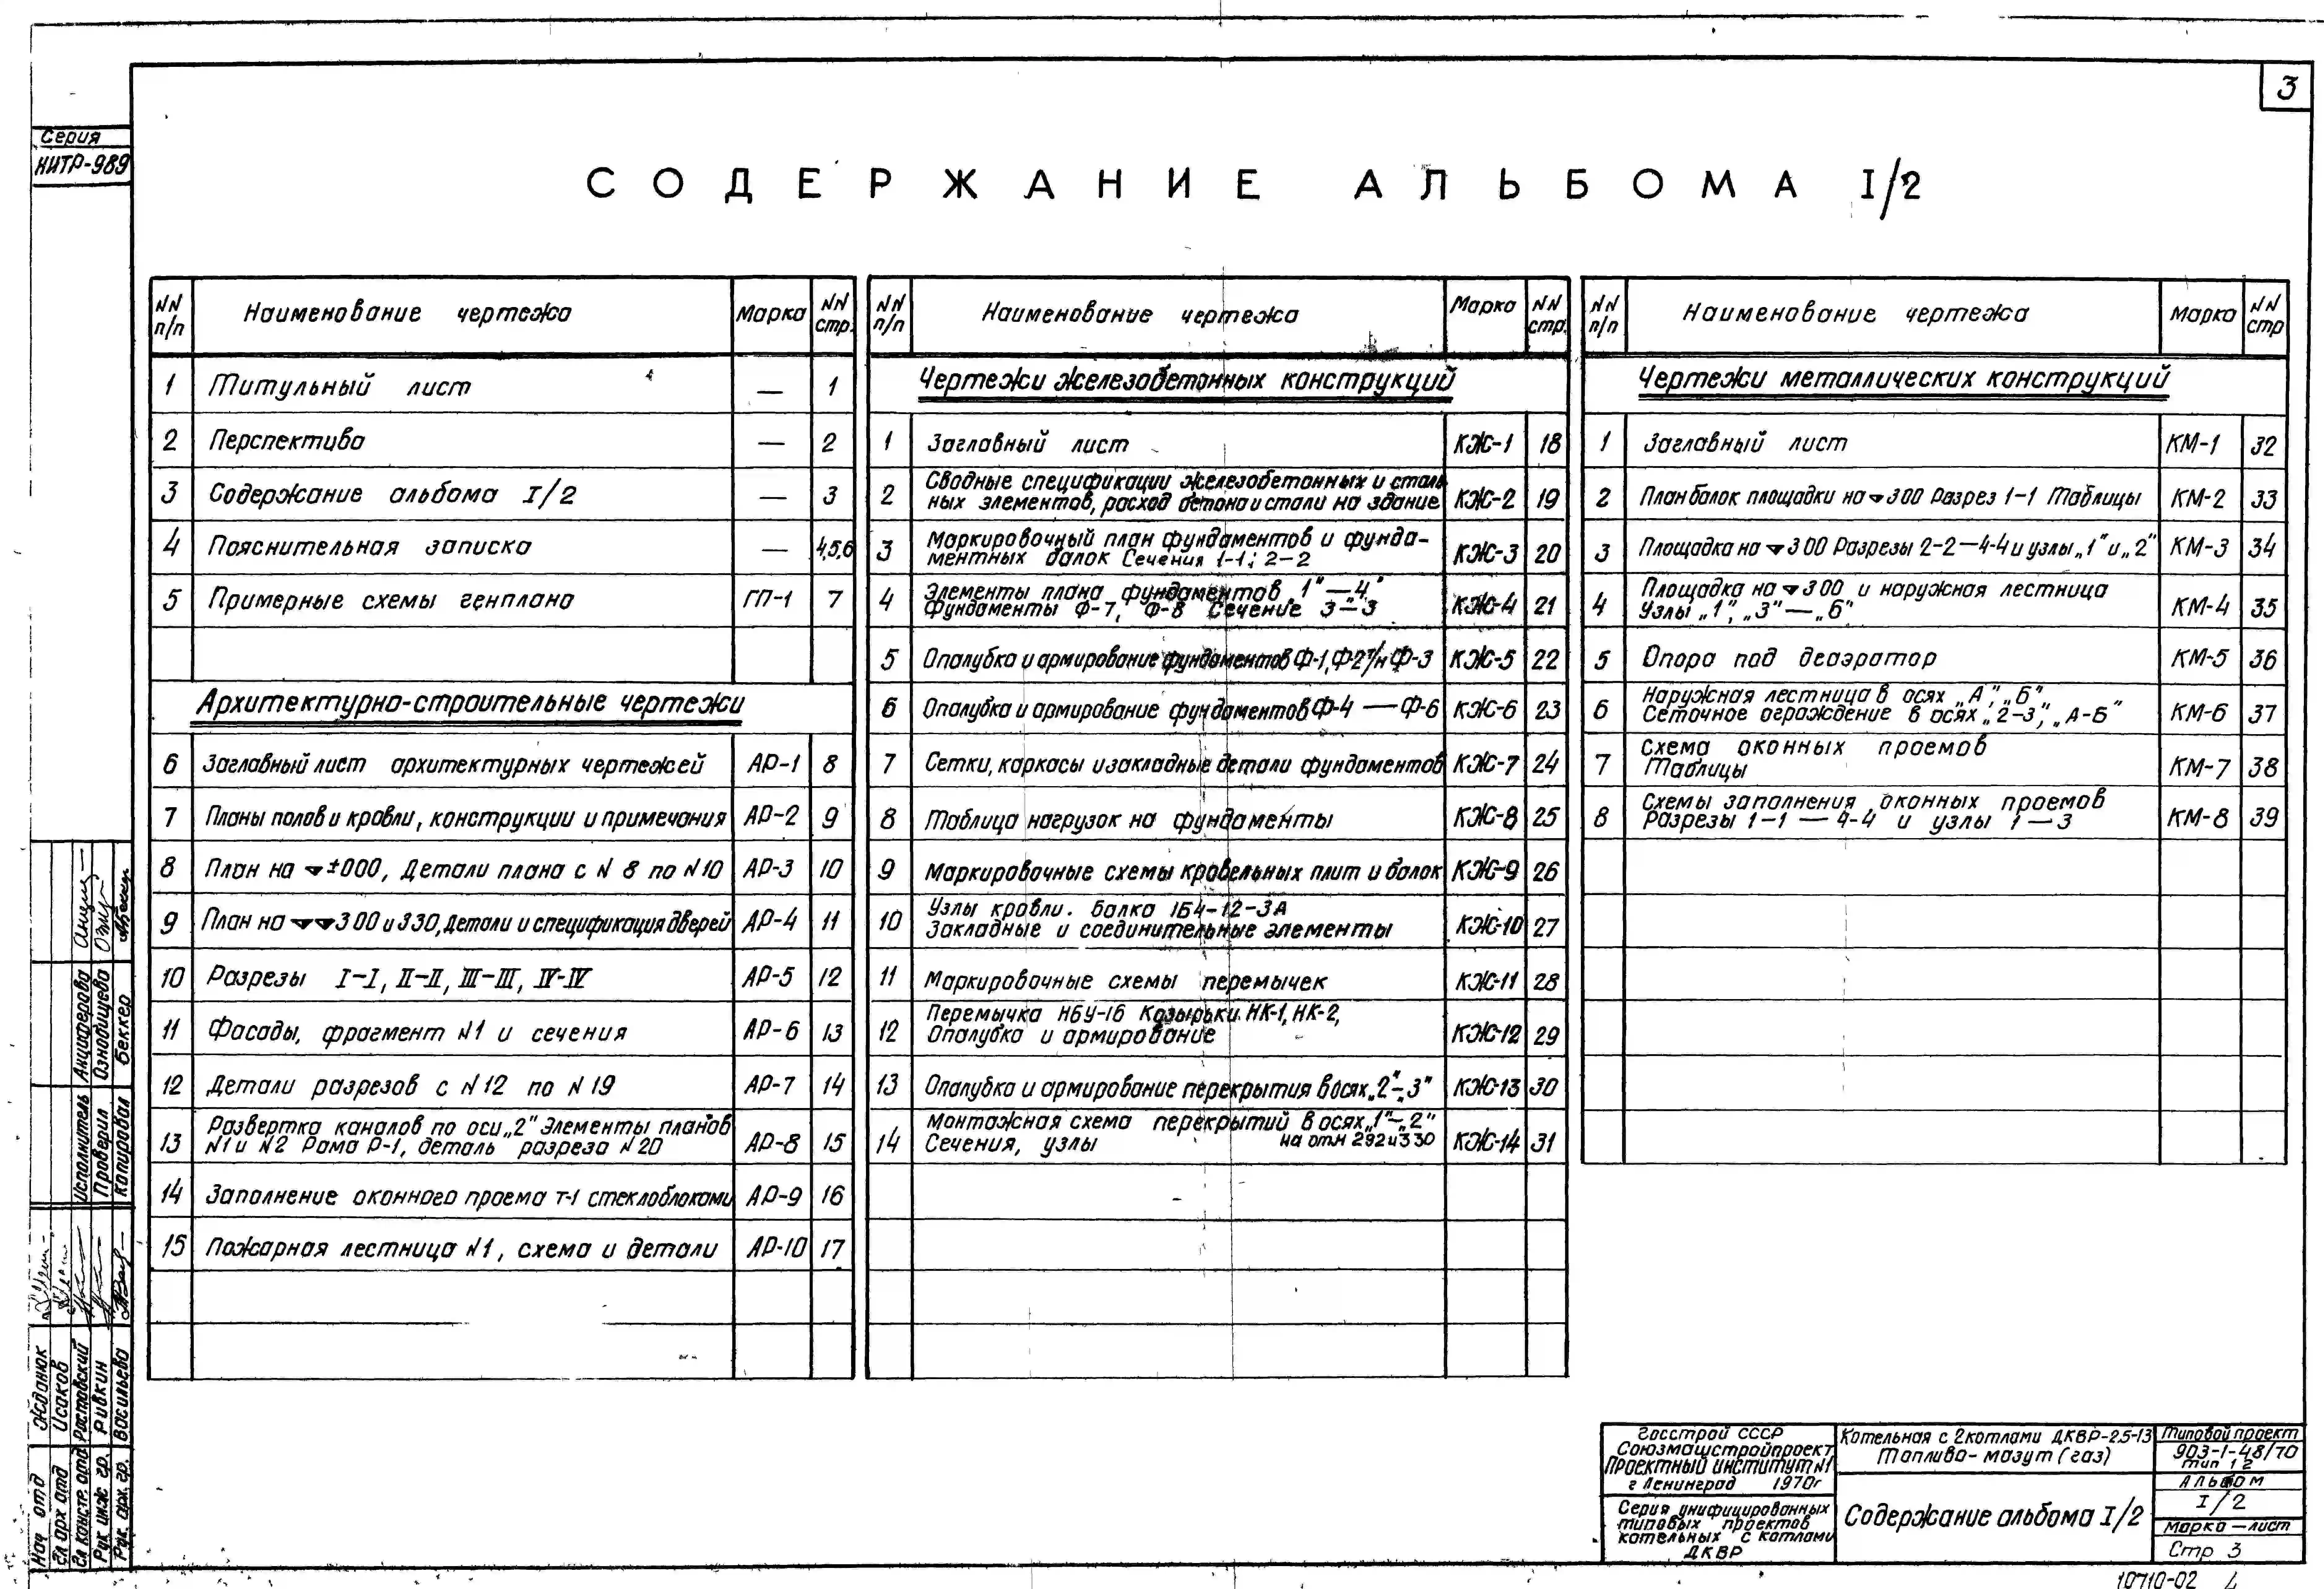 3
Серия
НИТР-989
СОДЕРЖАНИЕ АЛЬБОМА I/2
NN п/п Наименование чертежа Марка NN стр.
1 Титульный лист — 1
2 Перспектива — 2
3 Содержание альбома I/2 — 3
4 Пояснительная записка — 4,5,6
5 Примерные схемы генплана ГП-1 7
Архитектурно-строительные чертежи
6 Заглавный лист архитектурных чертежей АР-1 8
7 Планы полов и кровли, конструкции и примечания АР-2 9
8 План на ±000, Детали плана с N 8 по N10 АР-3 10
9 План на 300 и 330, Детали и спецификация дверей АР-4 11
10 Разрезы I-I, II-II, III-III, IV-IV АР-5 12
11 Фасады, фрагмент N1 и сечения АР-6 13
12 Детали разрезов с N12 по N19 АР-7 14
13 Развертка каналов по оси „2" Элементы планов
N1 и N2 Рама Р-1, деталь разреза N20 АР-8 15
14 Заполнение оконного проема Т-1 стеклоблоками АР-9 16
15 Пожарная лестница N1, схема и детали АР-10 17
NN п/п Наименование чертежа Марка NN стр.
Чертежи железобетонных конструкций
1 Заглавный лист КЖ-1 18
2 Сводные спецификации железобетонных и сталь
ных элементов, расход бетона и стали на здание КЖ-2 19
3 Маркировочный план фундаментов и фунда-
ментных балок Сечения 1-1; 2-2 КЖ-3 20
4 Элементы плана фундаментов „1"—„4"
Фундаменты Ф-7, Ф-8 Сечение 3-3 КЖ-4 21
5 Опалубка и армирование фундаментов Ф-1, Ф-2 и Ф-3 КЖ-5 22
6 Опалубка и армирование фундаментов Ф-4 — Ф-6 КЖ-6 23
7 Сетки, каркасы и закладные детали фундаментов КЖ-7 24
8 Таблица нагрузок на фундаменты КЖ-8 25
9 Маркировочные схемы кровельных плит и балок КЖ-9 26
10 Узлы кровли. балка 1Б4-12-3А
Закладные и соединительные элементы КЖ-10 27
11 Маркировочные схемы перемычек КЖ-11 28
12 Перемычка НБУ-16 Козырьки НК-1, НК-2,
Опалубка и армирование КЖ-12 29
13 Опалубка и армирование перекрытия в осях „2"-„3" КЖ-13 30
14 Монтажная схема перекрытий в осях „1"-„2"
Сечения, узлы на отм 292 и 330 КЖ-14 31
NN п/п Наименование чертежа Марка NN стр
Чертежи металлических конструкций
1 Заглавный лист КМ-1 32
2 План балок площадки на 300 Разрез 1-1 Таблицы КМ-2 33
3 Площадка на 300 Разрезы 2-2—4-4 и узлы „1" и „2" КМ-3 34
4 Площадка на 300 и наружная лестница
Узлы „1", „3"—„6" КМ-4 35
5 Опора под деаэратор КМ-5 36
6 Наружная лестница в осях „А", „Б",
Сеточное ограждение в осях „2-3", „А-Б" КМ-6 37
7 Схема оконных проемов
Таблицы КМ-7 38
8 Схемы заполнения оконных проемов
Разрезы 1-1 — 4-4 и узлы 1 — 3 КМ-8 39
Исполнитель Анциферова
Проверил Ознобищева
Копировал Беккер
Нач отд Жданюк
Гл арх отд Исаков
Гл констр. отд Ростовский
Рук инж гр. Ривкин
Рук. арх. гр. Васильева
Госстрой СССР
Союзмашстройпроект
Проектный институт N1
г Ленинград 1970г
Серия унифицированных
типовых проектов
котельных с котлами
ДКВР
Котельная с 2 котлами ДКВР-2,5-13
Топливо- мазут (газ)
Содержание альбома I/2
Типовой проект
903-1-48/70
тип 1 2
Альбом
I/2
Марка — лист
Стр 3
10710-02 4